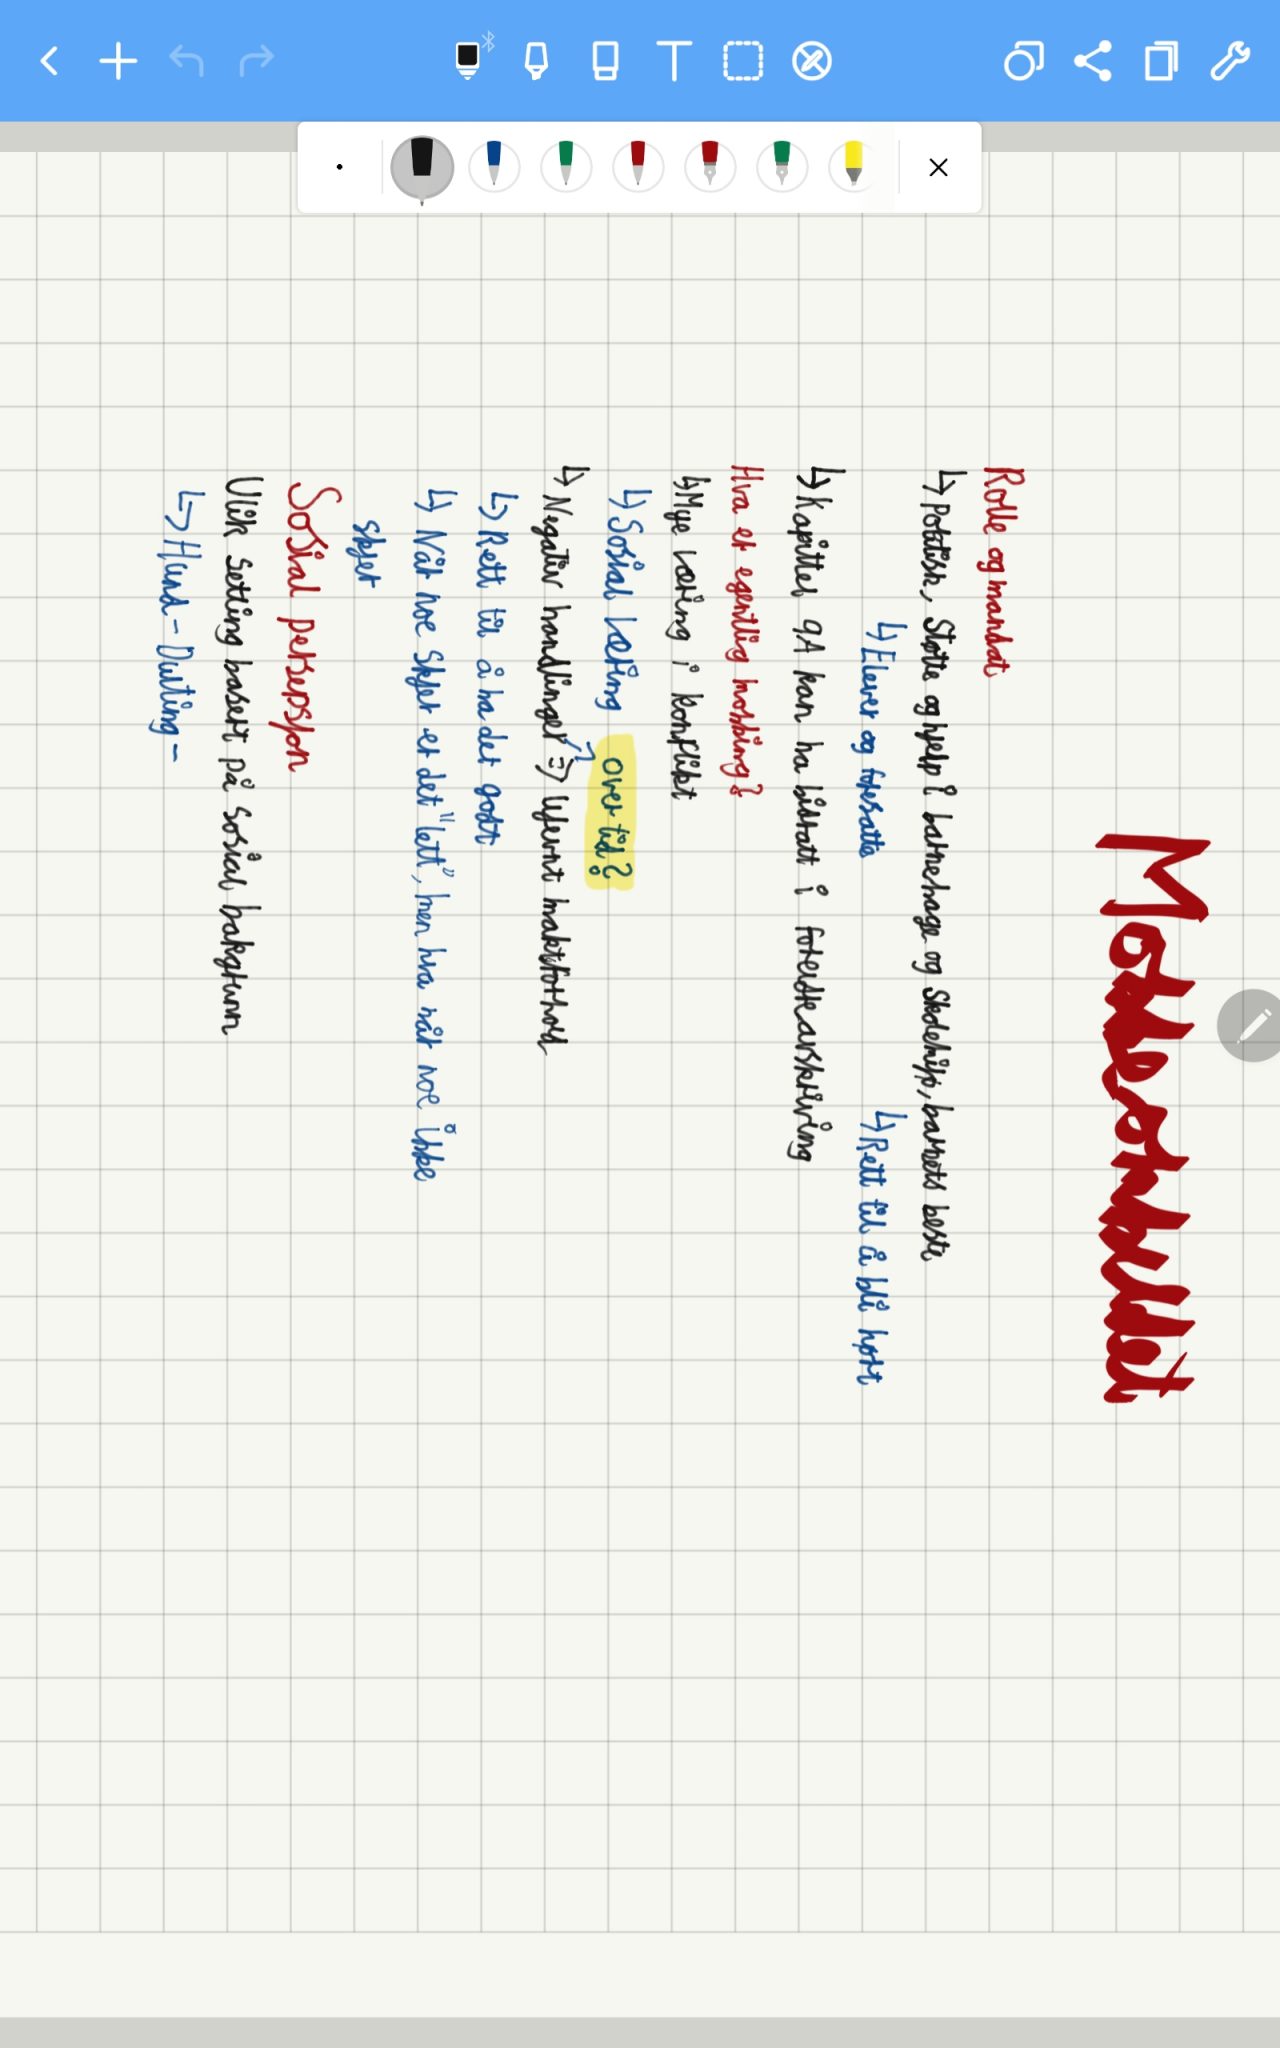 Mobbeombudet
Rolle og mandat
↳ Politisk, Støtte og hjelp i barnehage og Skolemiljø, barnets beste
↳ Elever og foresatte
↳ Rett til å bli hørt
↳ Kapittel 9A kan ha bidratt i foreldrearskriving
Hva er egentlig mobbing?
↳ Mye læring i konflikt
↳ Sosial læring
over tid?
↳ Negativ handlinger => Ujevnt maktforhold
↳ Rett til å ha det godt
↳ Når noe Skjer er det "lett", men hva når noe ikke
skjer
Sosial persepsjon
Ulik setting basert på sosial bakgrunn
↳ Hund - Dulting -